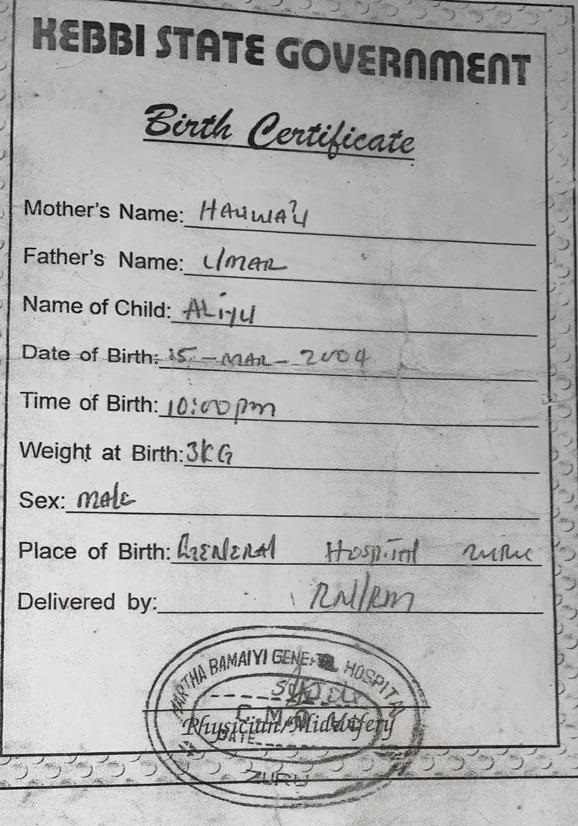 KEBBI STATE GOVERNMENT
Birth Certificate
Mother's Name: HAUWA'U
Father's Name: UMAR
Name of Child: ALIYU
Date of Birth: 15-MAR-2004
Time of Birth: 10:00pm
Weight at Birth: 3KG
Sex: male
Place of Birth: GENERAL Hospital zuru
Delivered by: RN/RM
MARTHA BAMAIYI GENERAL HOSPITAL
C.M.O
Physician/Midwifery
DATE
ZURU